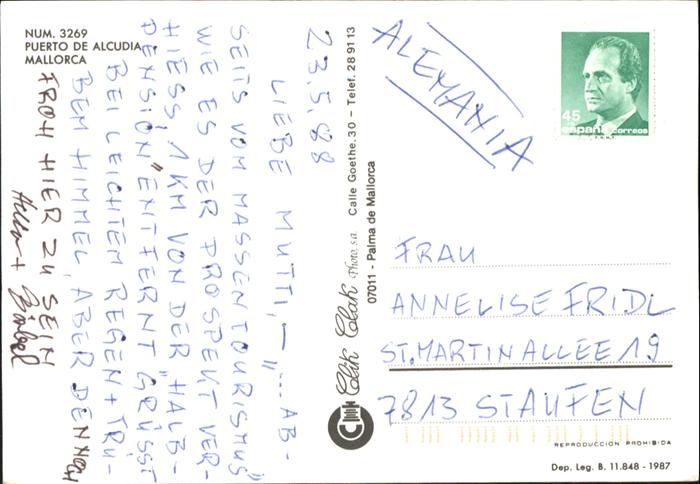 NUM. 3269
PUERTO DE ALCUDIA
MALLORCA
23.5.88
LIEBE MUTTI, — "... AB-
SEITS VOM MASSENTOURISMUS"
WIE ES DER PROSPEKT VER-
HIESS, 1 KM VON DER "HALB-
PENSION" ENTFERNT GRÜSST
BEI LEICHTEM REGEN + TRÜ-
BEM HIMMEL, ABER DENNOCH
FROH HIER ZU SEIN
Clik Clak Photo, s.a. Calle Goethe, 30 – Telef. 28 91 13
07011 - Palma de Mallorca
ALEMANIA
45
españa correos
F.N.M.T.
FRAU
ANNELISE FRIDL
ST. MARTINALLEE 19
7813 STAUFEN
REPRODUCCION PROHIBIDA
Dep. Leg. B. 11.848 - 1987